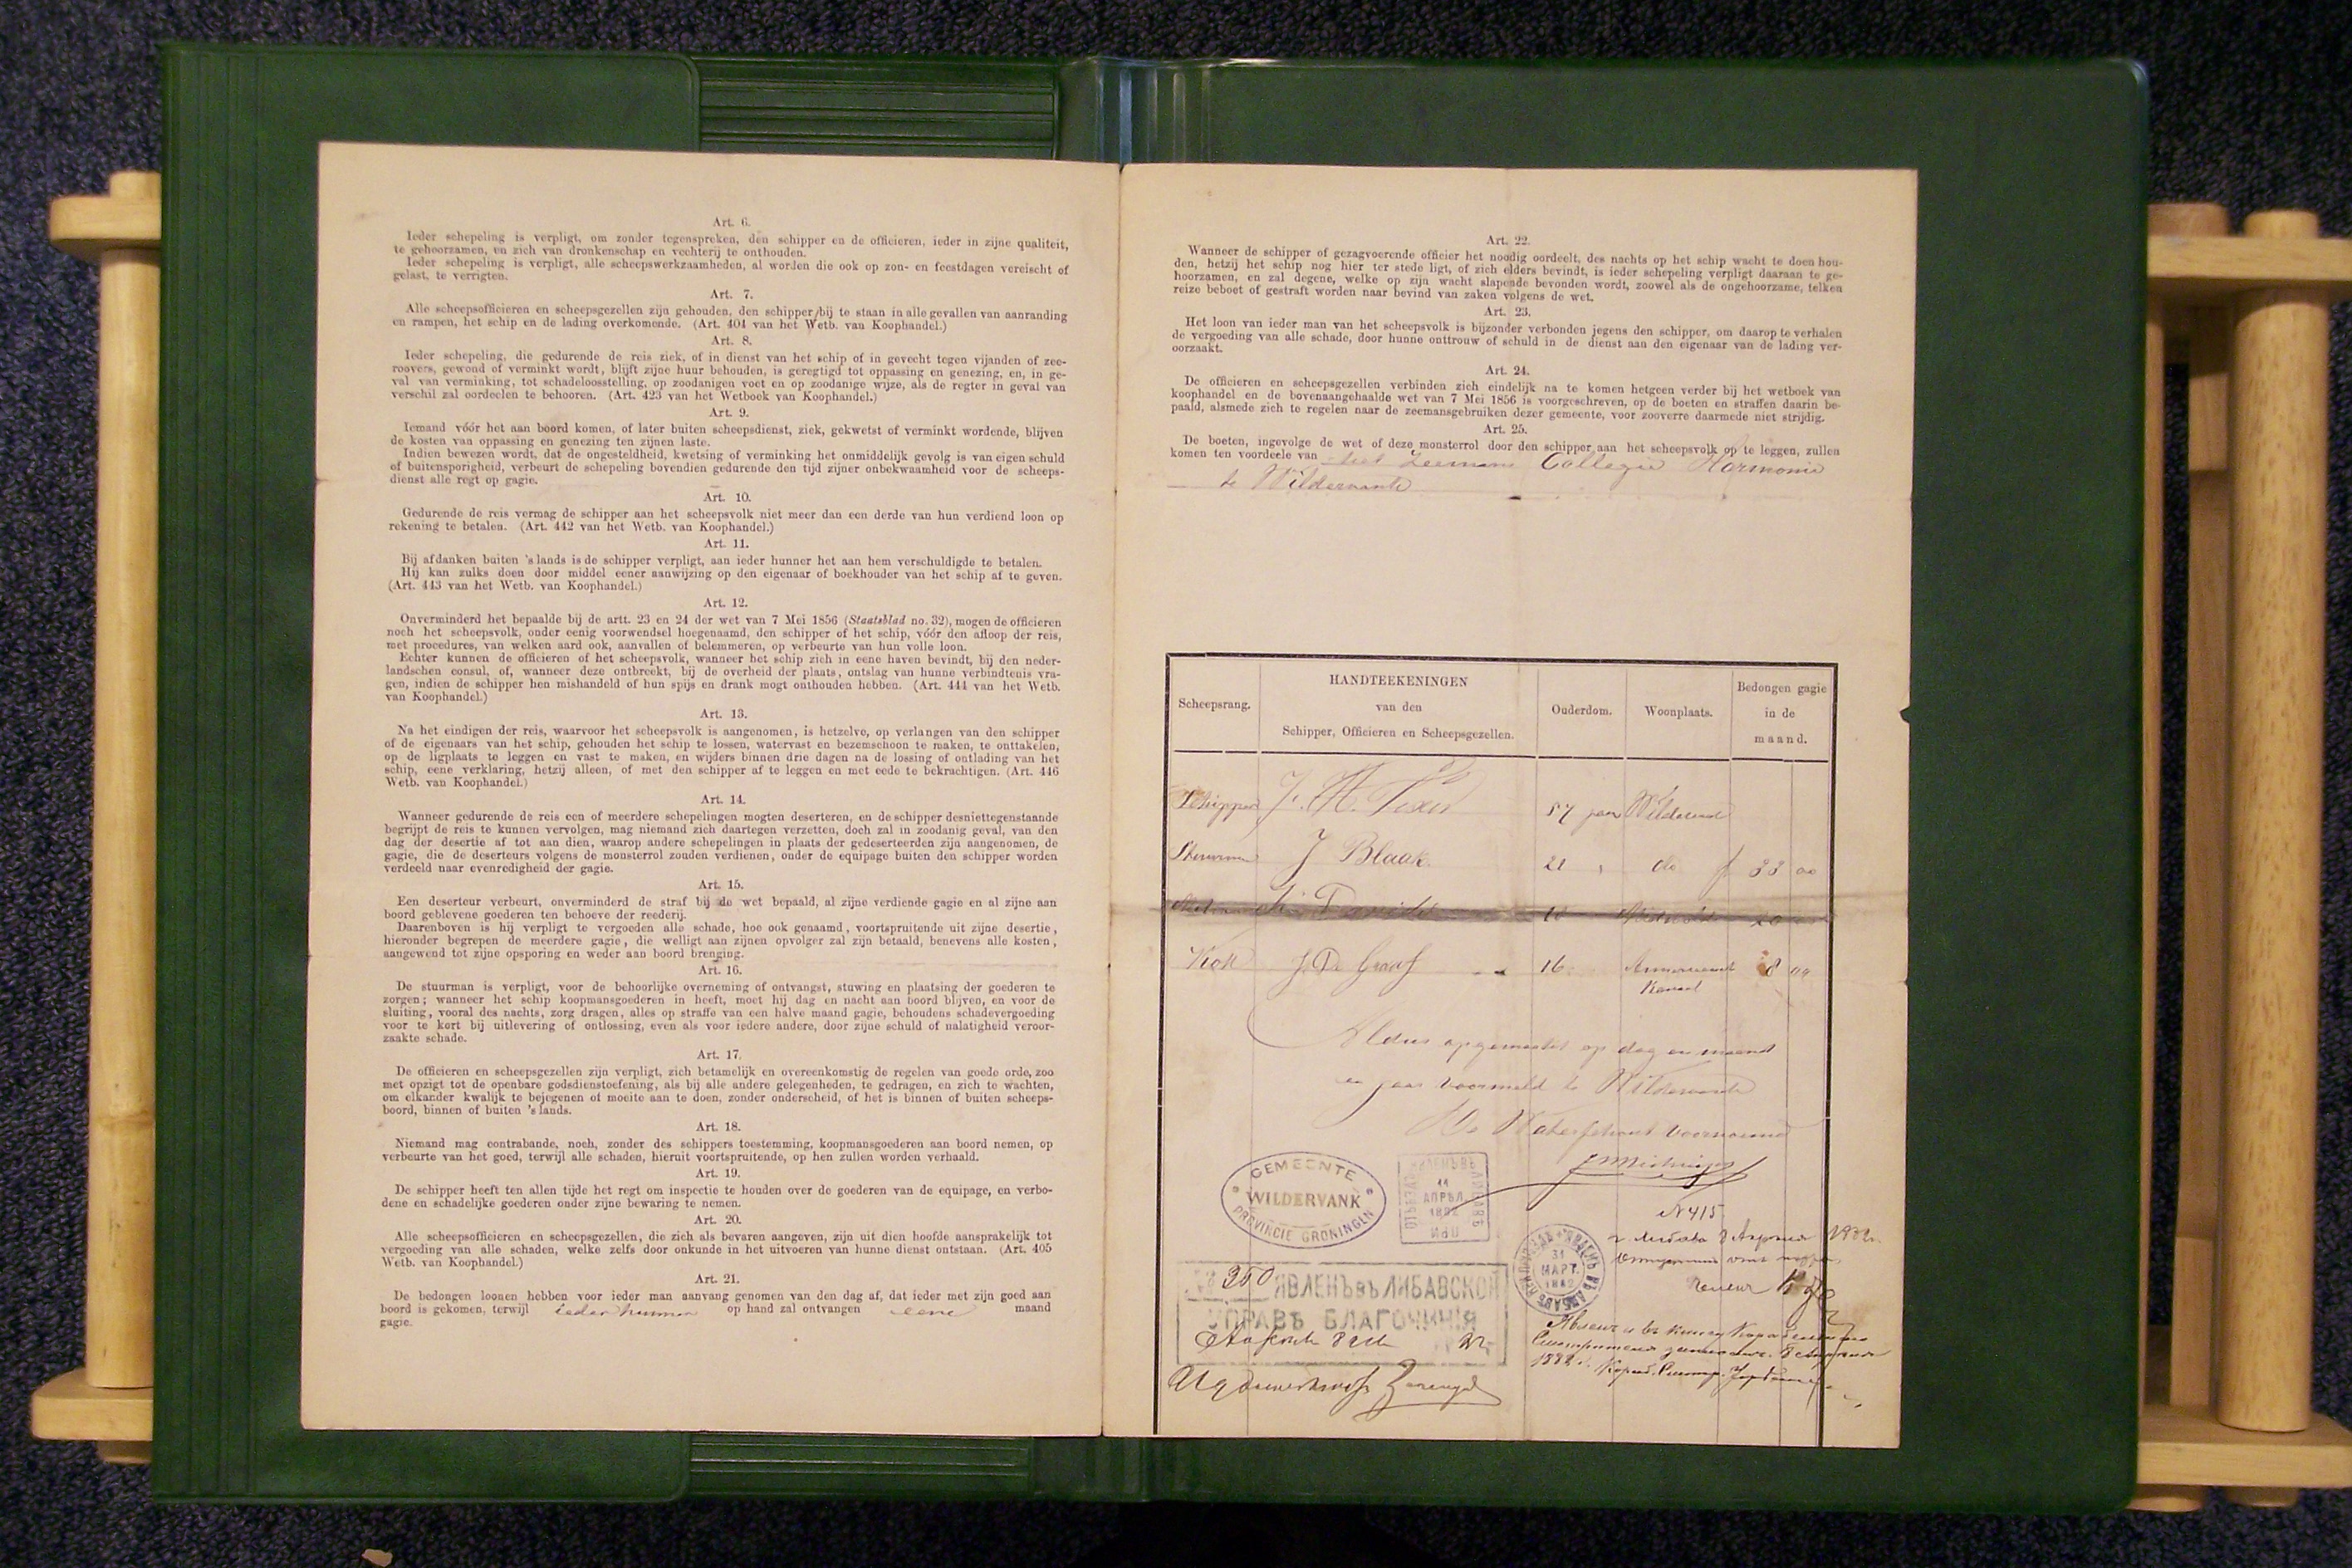 Art. 6.
Ieder schepeling is verpligt, om zonder tegenspreken, den schipper en de officieren, ieder in zijne qualiteit,
te gehoorzamen, en zich van dronkenschap en vechterij te onthouden.
Ieder schepeling is verpligt, alle scheepswerkzaamheden, al worden die ook op zon- en feestdagen vereischt of
gelast, te verrigten.
Art. 7.
Alle scheepsofficieren en scheepsgezellen zijn gehouden, den schipper bij te staan in alle gevallen van aanranding
en rampen, het schip en de lading overkomende. (Art. 404 van het Wetb. van Koophandel.)
Art. 8.
Ieder schepeling, die gedurende de reis ziek, of in dienst van het schip of in gevecht tegen vijanden of zee-
roovers, gewond of verminkt wordt, blijft zijne huur behouden, is geregtigd tot oppassing en genezing, en, in ge-
val van verminking, tot schadeloosstelling, op zoodanigen voet en op zoodanige wijze, als de regter in geval van
verschil zal oordeelen te behooren. (Art. 423 van het Wetboek van Koophandel.)
Art. 9.
Iemand vóór het aan boord komen, of later buiten scheepsdienst, ziek, gekwetst of verminkt wordende, blijven
de kosten van oppassing en genezing ten zijnen laste.
Indien bewezen wordt, dat de ongesteldheid, kwetsing of verminking het onmiddelijk gevolg is van eigen schuld
of buitensporigheid, verbeurt de schepeling bovendien gedurende den tijd zijner onbekwaamheid voor de scheeps-
dienst alle regt op gagie.
Art. 10.
Gedurende de reis vermag de schipper aan het scheepsvolk niet meer dan een derde van hun verdiend loon op
rekening te betalen. (Art. 442 van het Wetb. van Koophandel.)
Art. 11.
Bij afdanken buiten 's lands is de schipper verpligt, aan ieder hunner het aan hem verschuldigde te betalen.
Hij kan zulks doen door middel eener aanwijzing op den eigenaar of boekhouder van het schip af te geven.
(Art. 443 van het Wetb. van Koophandel.)
Art. 12.
Onverminderd het bepaalde bij de artt. 23 en 24 der wet van 7 Mei 1856 (Staatsblad no. 32), mogen de officieren
noch het scheepsvolk, onder eenig voorwendsel hoegenaamd, den schipper of het schip, vóór den afloop der reis,
met procedures, van welken aard ook, aanvallen of belemmeren, op verbeurte van hun volle loon.
Echter kunnen de officieren of het scheepsvolk, wanneer het schip zich in eene haven bevindt, bij den neder-
landschen consul, of, wanneer deze ontbreekt, bij de overheid der plaats, ontslag van hunne verbindtenis vra-
gen, indien de schipper hen mishandeld of hun spijs en drank mogt onthouden hebben. (Art. 444 van het Wetb.
van Koophandel.)
Art. 13.
Na het eindigen der reis, waarvoor het scheepsvolk is aangenomen, is hetzelve, op verlangen van den schipper
of de eigenaars van het schip, gehouden het schip te lossen, watervast en bezemschoon te maken, te onttakelen,
op de ligplaats te leggen en vast te maken, en wijders binnen drie dagen na de lossing of ontlading van het
schip, eene verklaring, hetzij alleen, of met den schipper af te leggen en met eede te bekrachtigen. (Art. 446
Wetb. van Koophandel.)
Art. 14.
Wanneer gedurende de reis een of meerdere schepelingen mogten deserteren, en de schipper desniettegenstaande
begrijpt de reis te kunnen vervolgen, mag niemand zich daartegen verzetten, doch zal in zoodanig geval, van den
dag der desertie af tot aan dien, waarop andere schepelingen in plaats der gedeserteerden zijn aangenomen, de
gagie, die de deserteurs volgens de monsterrol zouden verdienen, onder de equipage buiten den schipper worden
verdeeld naar evenredigheid der gagie.
Art. 15.
Een deserteur verbeurt, onverminderd de straf bij de wet bepaald, al zijne verdiende gagie en al zijne aan
boord geblevene goederen ten behoeve der reederij.
Daarenboven is hij verpligt te vergoeden alle schade, hoe ook genaamd, voortspruitende uit zijne desertie,
hieronder begrepen de meerdere gagie, die welligt aan zijnen opvolger zal zijn betaald, benevens alle kosten,
aangewend tot zijne opsporing en weder aan boord brenging.
Art. 16.
De stuurman is verpligt, voor de behoorlijke overneming of ontvangst, stuwing en plaatsing der goederen te
zorgen; wanneer het schip koopmansgoederen in heeft, moet hij dag en nacht aan boord blijven, en voor de
sluiting, vooral des nachts, zorg dragen, alles op straffe van een halve maand gagie, behoudens schadevergoeding
voor te kort bij uitlevering of ontlossing, even als voor iedere andere, door zijne schuld of nalatigheid veroor-
zaakte schade.
Art. 17.
De officieren en scheepsgezellen zijn verpligt, zich betamelijk en overeenkomstig de regelen van goede orde, zoo
met opzigt tot de openbare godsdienstoefening, als bij alle andere gelegenheden, te gedragen, en zich te wachten,
om elkander kwalijk te bejegenen of moeite aan te doen, zonder onderscheid, of het is binnen of buiten scheeps-
boord, binnen of buiten 's lands.
Art. 18.
Niemand mag contrabande, noch, zonder des schippers toestemming, koopmansgoederen aan boord nemen, op
verbeurte van het goed, terwijl alle schaden, hieruit voortspruitende, op hen zullen worden verhaald.
Art. 19.
De schipper heeft ten allen tijde het regt om inspectie te houden over de goederen van de equipage, en verbo-
dene en schadelijke goederen onder zijne bewaring te nemen.
Art. 20.
Alle scheepsofficieren en scheepsgezellen, die zich als bevaren aangeven, zijn uit dien hoofde aansprakelijk tot
vergoeding van alle schaden, welke zelfs door onkunde in het uitvoeren van hunne dienst ontstaan. (Art. 405
Wetb. van Koophandel.)
Art. 21.
De bedongen loonen hebben voor ieder man aanvang genomen van den dag af, dat ieder met zijn goed aan
boord is gekomen, terwijl ieder hunner op hand zal ontvangen eene maand
gagie.
Art. 22.
Wanneer de schipper of gezagvoerende officier het noodig oordeelt, des nachts op het schip wacht te doen hou-
den, hetzij het schip nog hier ter stede ligt, of zich elders bevindt, is ieder schepeling verpligt daaraan te ge-
hoorzamen, en zal degene, welke op zijn wacht slapende bevonden wordt, zoowel als de ongehoorzame, telken
reize beboet of gestraft worden naar bevind van zaken volgens de wet.
Art. 23.
Het loon van ieder man van het scheepsvolk is bijzonder verbonden jegens den schipper, om daarop te verhalen
de vergoeding van alle schade, door hunne onttrouw of schuld in de dienst aan den eigenaar van de lading ver-
oorzaakt.
Art. 24.
De officieren en scheepsgezellen verbinden zich eindelijk na te komen hetgeen verder bij het wetboek van
koophandel en de bovenaangehaalde wet van 7 Mei 1856 is voorgeschreven, op de boeten en straffen daarin be-
paald, alsmede zich te regelen naar de zeemansgebruiken dezer gemeente, voor zooverre daarmede niet strijdig.
Art. 25.
De boeten, ingevolge de wet of deze monsterrol door den schipper aan het scheepsvolk op te leggen, zullen
komen ten voordeele van het Zeemans Collegie Harmonie
te Wildervank
Scheepsrang. HANDTEEKENINGEN van den Schipper, Officieren en Scheepsgezellen. Ouderdom. Woonplaats. Bedongen gagie in de maand.
Schipper J. H. 57 jaar Wildervank
Stuurman J Blaak 21 " do f 33 00
20
Kok J. De Graaf 16 Annerveensche Kanaal 8 00
Aldus opgemaakt op dag en maand
en jaar voormeld te Wildervank
De Waterschout voornoemd
GEMEENTE
WILDERVANK
PROVINCIE GRONINGEN
11
АПРѢЛ
1882
N 415
31
МАРТ.
1882
г. Либава 8 Апреля 1882 г.
350 ЯВЛЕНЪ въ ЛИБАВСКОЙ
УПРАВѢ БЛАГОЧИНІЯ
1882 г.